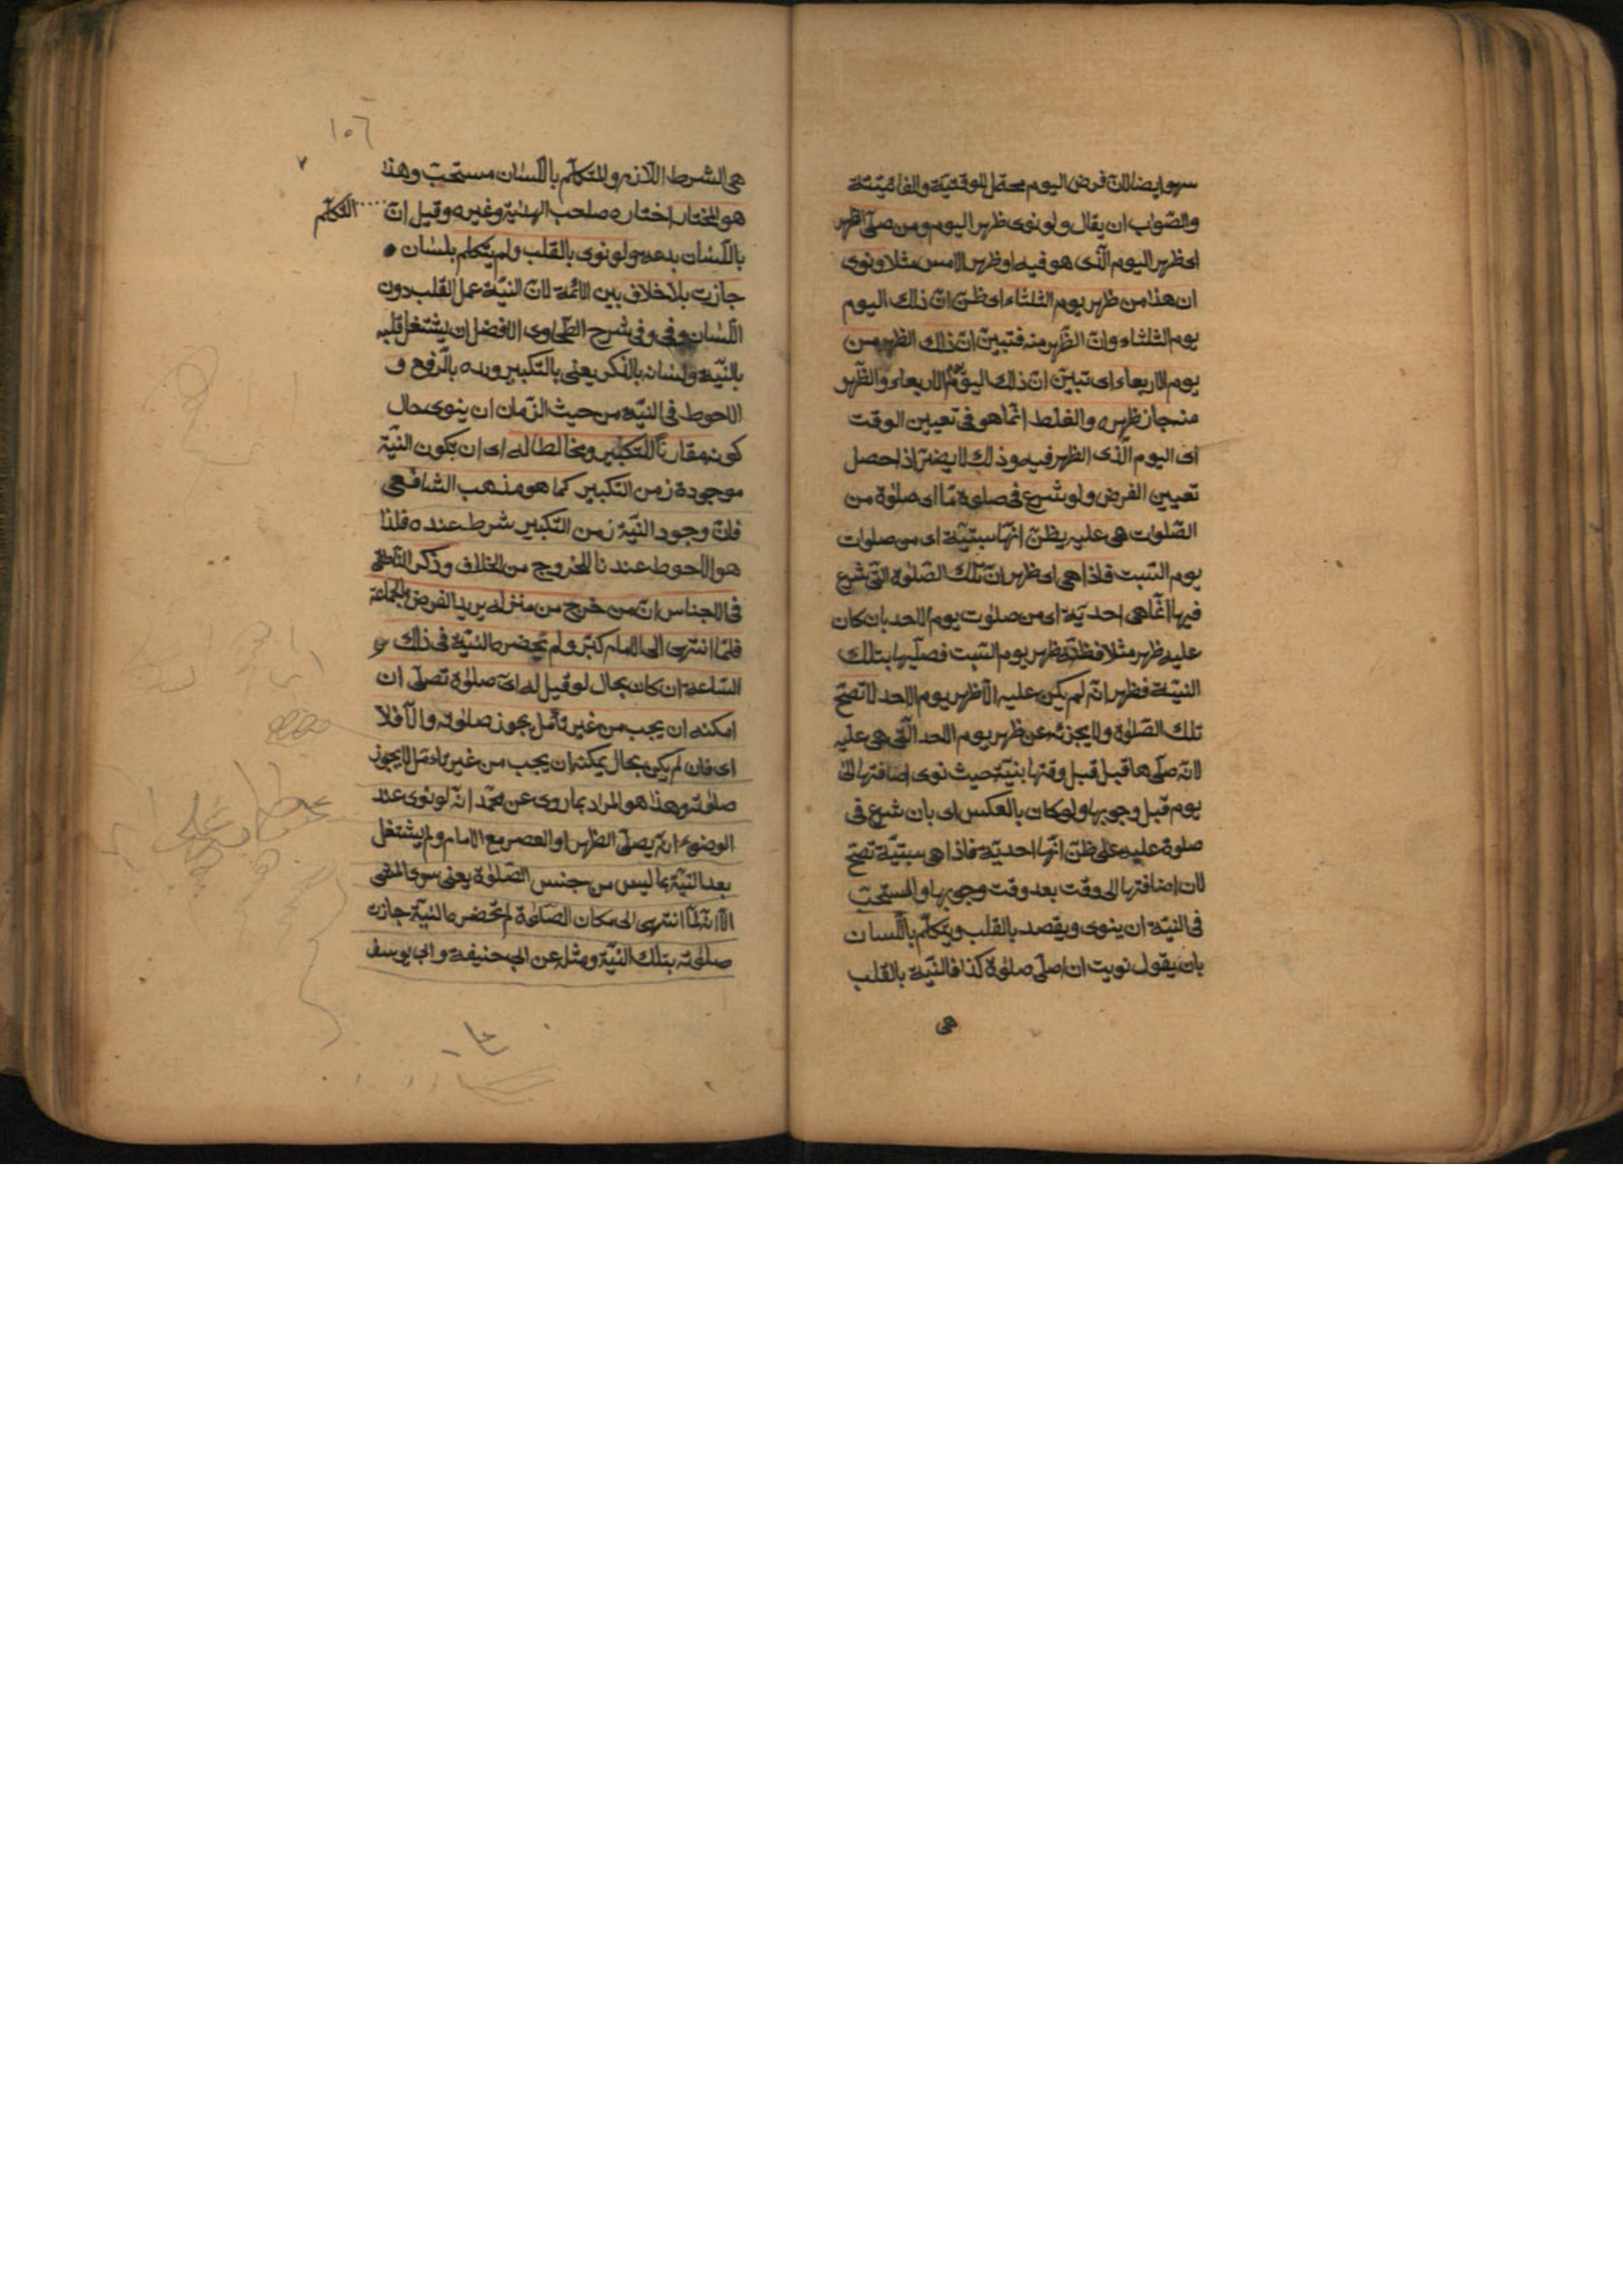 سهو ايضا لان فرض اليوم محتمل للوقتية والفائتة
والصّواب ان يقال ولو نوى ظهر اليوم ومن صلّى الظهر
اى ظهر اليوم الّذى هو فيه او ظهر الامس مثلا ونوى
ان هذا من ظهر يوم الثلثاء اى ظنّ انّ ذلك اليوم
يوم الثلثاء وانّ الظّهر منه فتبيّن انّ ذلك الظهر من
يوم الاربعاء اى تبيّن انّ ذلك اليوم يوم الاربعاء والظّهر
منه جاز ظهره والغلط انّما هو فى تعيين الوقت
اى اليوم الّذى الظهر فيه وذلك لا يضرّ اذا حصل
تعيين الفرض ولو شرع فى صلوة مّا اى صلوة من
الصّلوات هى عليه يظنّ انّها سبتيّة اى من صلوات
يوم السّبت فاذا هى اى ظهر انّ تلك الصّلوة الّتى شرع
فيها انّما هى احديّة اى من صلوت يوم الاحد بان كان
عليه ظهر مثلا فظنّه ظهر يوم السّبت فصلّيها بتلك
النيّة فظهر انّه لم يكن عليه الّا ظهر يوم الاحد لا تصحّ
تلك الصّلوة ولا يجزئه عن ظهر يوم الاحد الّتى هى عليه
لانّه صلّى ها قبل قبل وقتها بنيّة حيث نوى اضافتها الى
يوم قبل وجوبها ولو كان بالعكس اى بان شرع فى
صلوة عليه على ظنّ انّها احديّة فاذا هى سبتيّة تصحّ
لان اضافتها الى وقت بعد وقت وجوبها والمستحبّ
فى النيّة ان ينوى ويقصد بالقلب ويتكلّم باللّسان
بان يقول نويت ان اصلّى صلوة كذا فالنيّة بالقلب
هى
١٠٦
هى الشرط اللّازم والتكلّم باللّسان مستحبّ وهذا
هو المختار اختاره صاحب الهداية وغيره وقيل انّ التكلّم
باللّسان بدعة ولو نوى بالقلب ولم يتكلم بلسان
جازت بلا خلاف بين الائمّة لانّ النيّة عمل القلب دون
اللّسان وفى شرح الطّحاوى الافضل ان يشتغل قلبه
بالنيّة ولسانه بالذكر يعنى بالتكبير ويده بالرّفع و
الاحوط فى النيّة من حيث الزّمان ان ينوى حال
كونه مقارنًا للتّكبير ومخالطا له اى ان يكون النيّة
موجودة زمن التكبير كما هو مذهب الشافعى
فانّ وجود النيّة زمن التّكبير شرط عنده فلذا
هو الاحوط عندنا للخروج من الخلاف وذكر النّاطفى
فى الاجناس انّ من خرج من منزله يريد الفرض بالجماعة
فلمّا انتهى الى الامام كبّر ولم تحضره النيّة فى ذلك
السّاعة ان كان بحال لو قيل له اىّ صلوة تصلّى ان
امكنه ان يجب من غير تأمل يجوز صلوته والّا فلا
اى فان لم يكن بحال يمكنه ان يجب من غير تأمّل لا يجوز
صلوته وهذا هو المراد بما روى عن محمّد انّه لو نوى عند
الوضوء انّه يصلّى الظهر او العصر مع الامام ولم يشتغل
بعد النيّة بما ليس من جنس الصّلوة يعنى سوى المشى
الّا انّه لمّا انتهى الى مكان الصّلوة لم تحضره النيّة جازت
صلوته بتلك النيّة ومثله عن ابى حنيفة وابى يوسف